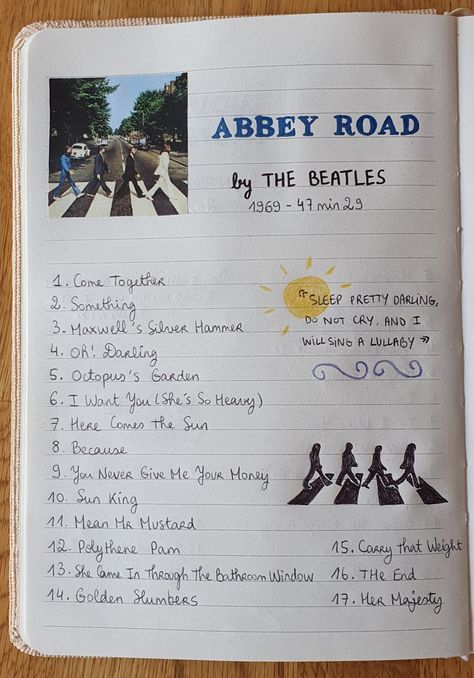 ABBEY ROAD
by THE BEATLES
1969 - 47 min 29
1. Come Together
2. Something
3. Maxwell's Silver Hammer
4. Oh! Darling
5. Octopus's Garden
6. I Want You (She's So Heavy)
7. Here Comes The Sun
8. Because
9. You Never Give Me Your Money
10. Sun King
11. Mean Mr Mustard
12. Polythene Pam
13. She Came In Through The Bathroom Window
14. Golden Slumbers
15. Carry That Weight
16. THe End
17. Her Majesty
"SLEEP PRETTY DARLING,
DO NOT CRY, AND I
WILL SING A LULLABY »